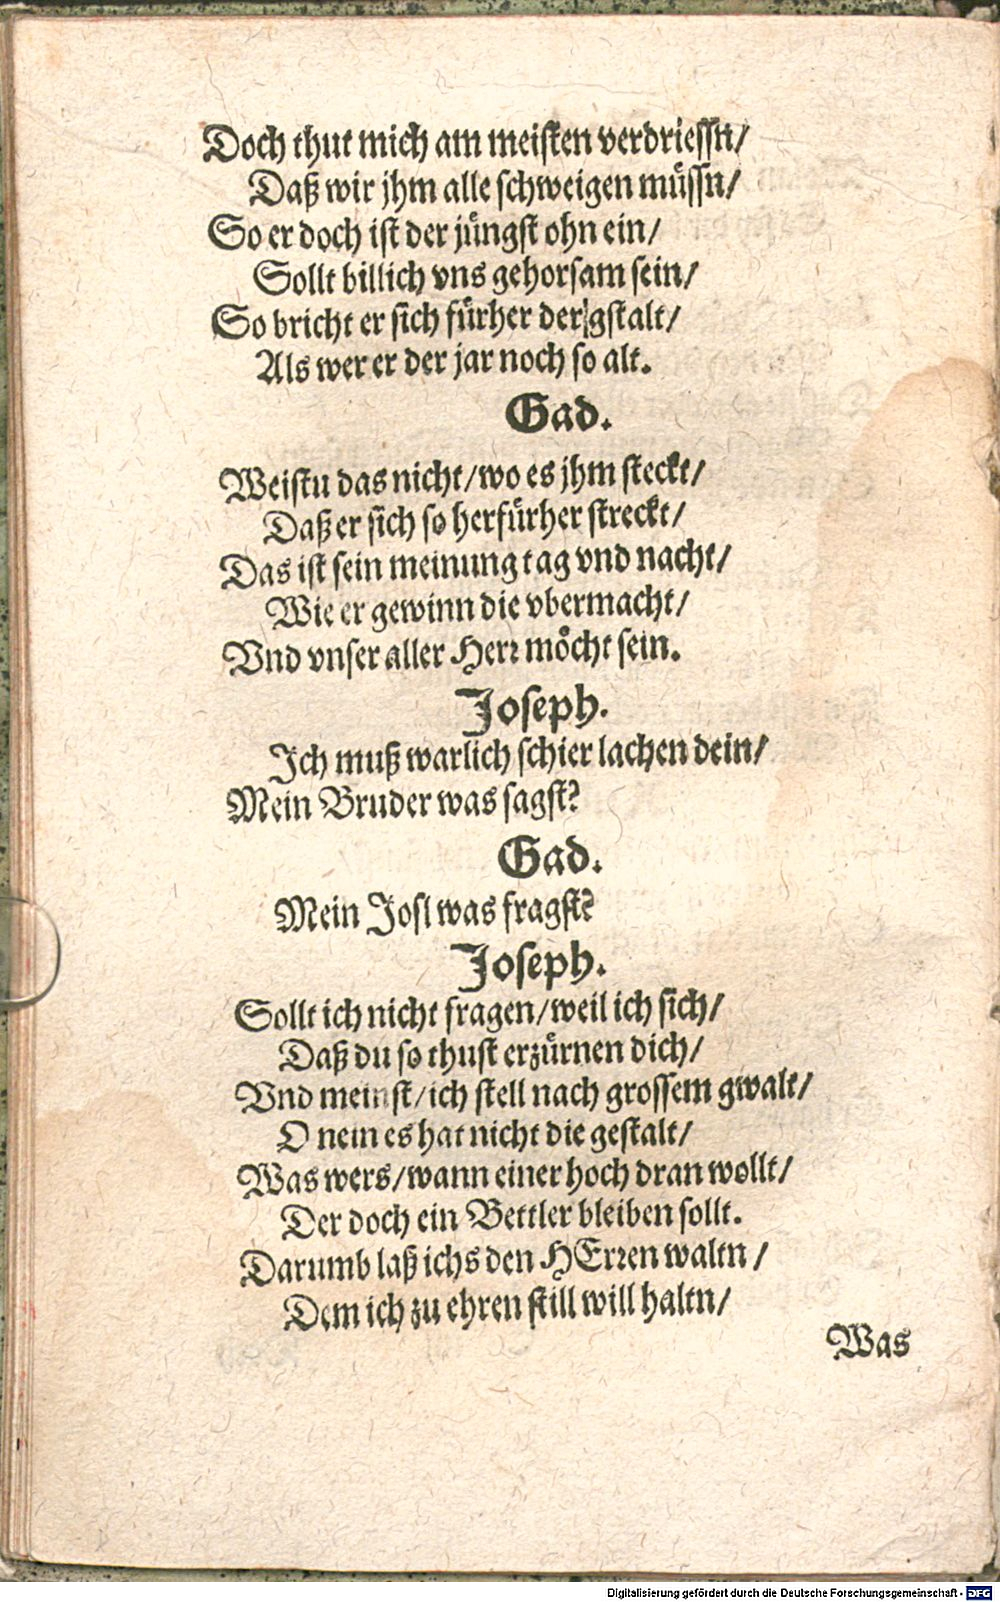 Doch thut mich am meisten verdriessn/
Daß wir jhm alle schweigen müssn/
So er doch ist der jüngst ohn ein/
Sollt billich vns gehorsam sein/
So bricht er sich fürher der gstalt/
Als wer er der jar noch so alt.
Gad.
Weistu das nicht/wo es jhm steckt/
Daß er sich so herfürher streckt/
Das ist sein meinung tag vnd nacht/
Wie er gewinn die vbermacht/
Vnd vnser aller Herr möcht sein.
Joseph.
Ich muß warlich schier lachen dein/
Mein Bruder was sagst?
Gad.
Mein Josl was fragst?
Joseph.
Sollt ich nicht fragen/weil ich sich/
Daß du so thust erzürnen dich/
Vnd meinst/ich stell nach grossem gwalt/
O nein es hat nicht die gestalt/
Was wers/wann einer hoch dran wollt/
Der doch ein Bettler bleiben sollt.
Darumb laß ichs den HErren waltn/
Dem ich zu ehren still will haltn/
Was
Digitalisierung gefördert durch die Deutsche Forschungsgemeinschaft - DFG